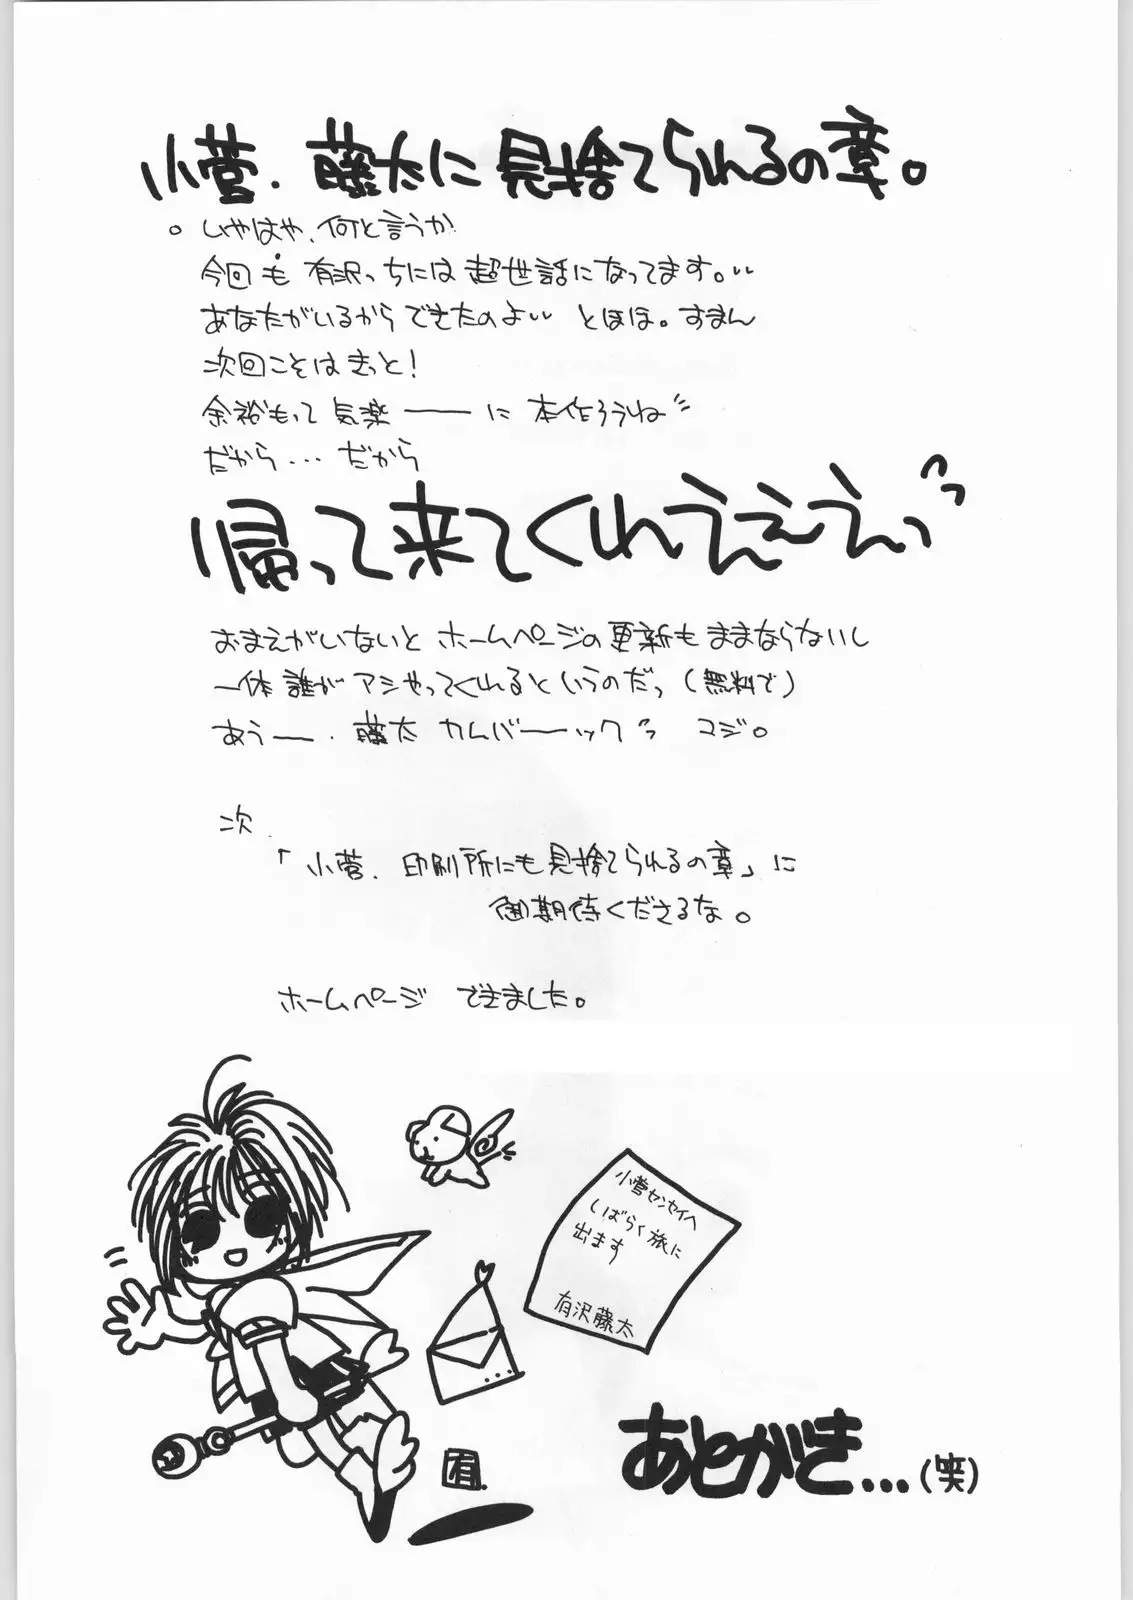 小菅、藤太に見捨てられるの章。
。いやはや、何と言うか
今回も有沢っちには超世話になってます。‥
あなたがいるからできたのよ‥ とほほ。すまん
次回こそはきっと！
余裕もって気楽――に本作ろうね〃
だから・・・だから
帰って来てくれえええっ〃
おまえがいないとホームページの更新もままならないし
一体誰がアシやってくれるというのだっ（無料で）
あう――、藤太カムバ――ックっ コジ。
次、
「小菅、印刷所にも見捨てられるの章」に
御期待くださるな。
ホームページ できました。
小菅センセイへ
しばらく旅に
出ます
有沢藤太
有
あとがき...（笑）